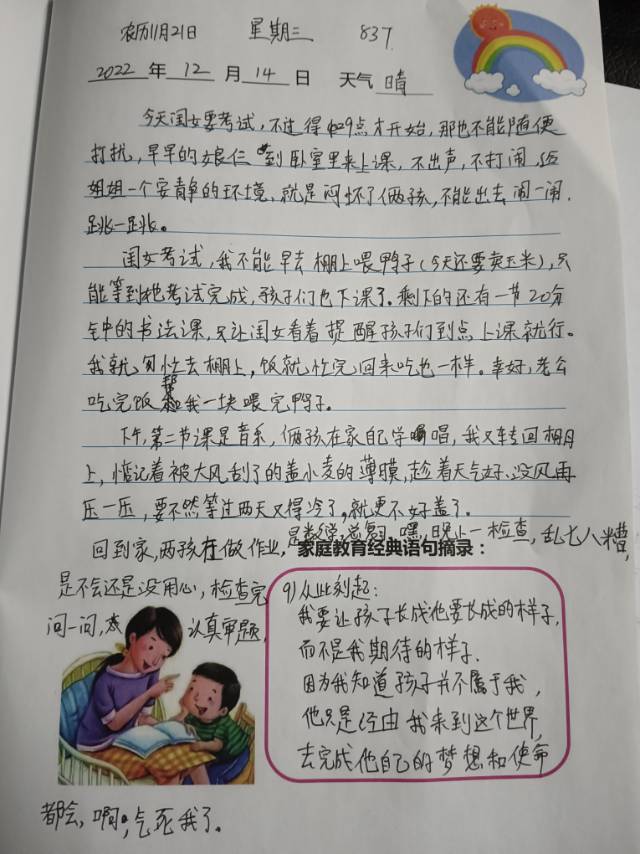 农历11月21日 星期三 837
2022 年 12 月 14 日 天气 晴
今天闺女要考试，不过得中午9点才开始，那也不能随便
打扰，早早的娘仨到卧室里来上课，不出声，不打闹，给
姐姐一个安静的环境，就是闷坏了俩孩，不能出去闹一闹，
跳一跳。
闺女考试，我不能早去棚上喂鸭子（今天还要卖玉米），只
能等到她考试完成，孩子们也下课了。剩下的还有一节20分
钟的书法课，只让闺女看着提醒孩子们到点上课就行。
我就匆忙去棚上，饭就忙完回来吃也一样。幸好，老公
吃完饭帮我一块喂完鸭子。
下午，第二节课是音乐，俩孩在家自己学唱，我又转回棚
上，惦记着被大风刮了的盖小麦的薄膜，趁着天气好没风再
压一压，要不然等过两天又得冷了，就更不好盖了。
回到家，两孩在做作业，是数学总复习，嘿，晚上一检查，乱七八糟，
家庭教育经典语句摘录：
是不会还是没用心，检查完
问一问，认真审题，
都会，啊，气死我了。
9）从此刻起：
我要让孩子长成他要长成的样子，
而不是我期待的样子.
因为我知道孩子并不属于我，
他只是经由我来到这个世界，
去完成他自己的梦想和使命